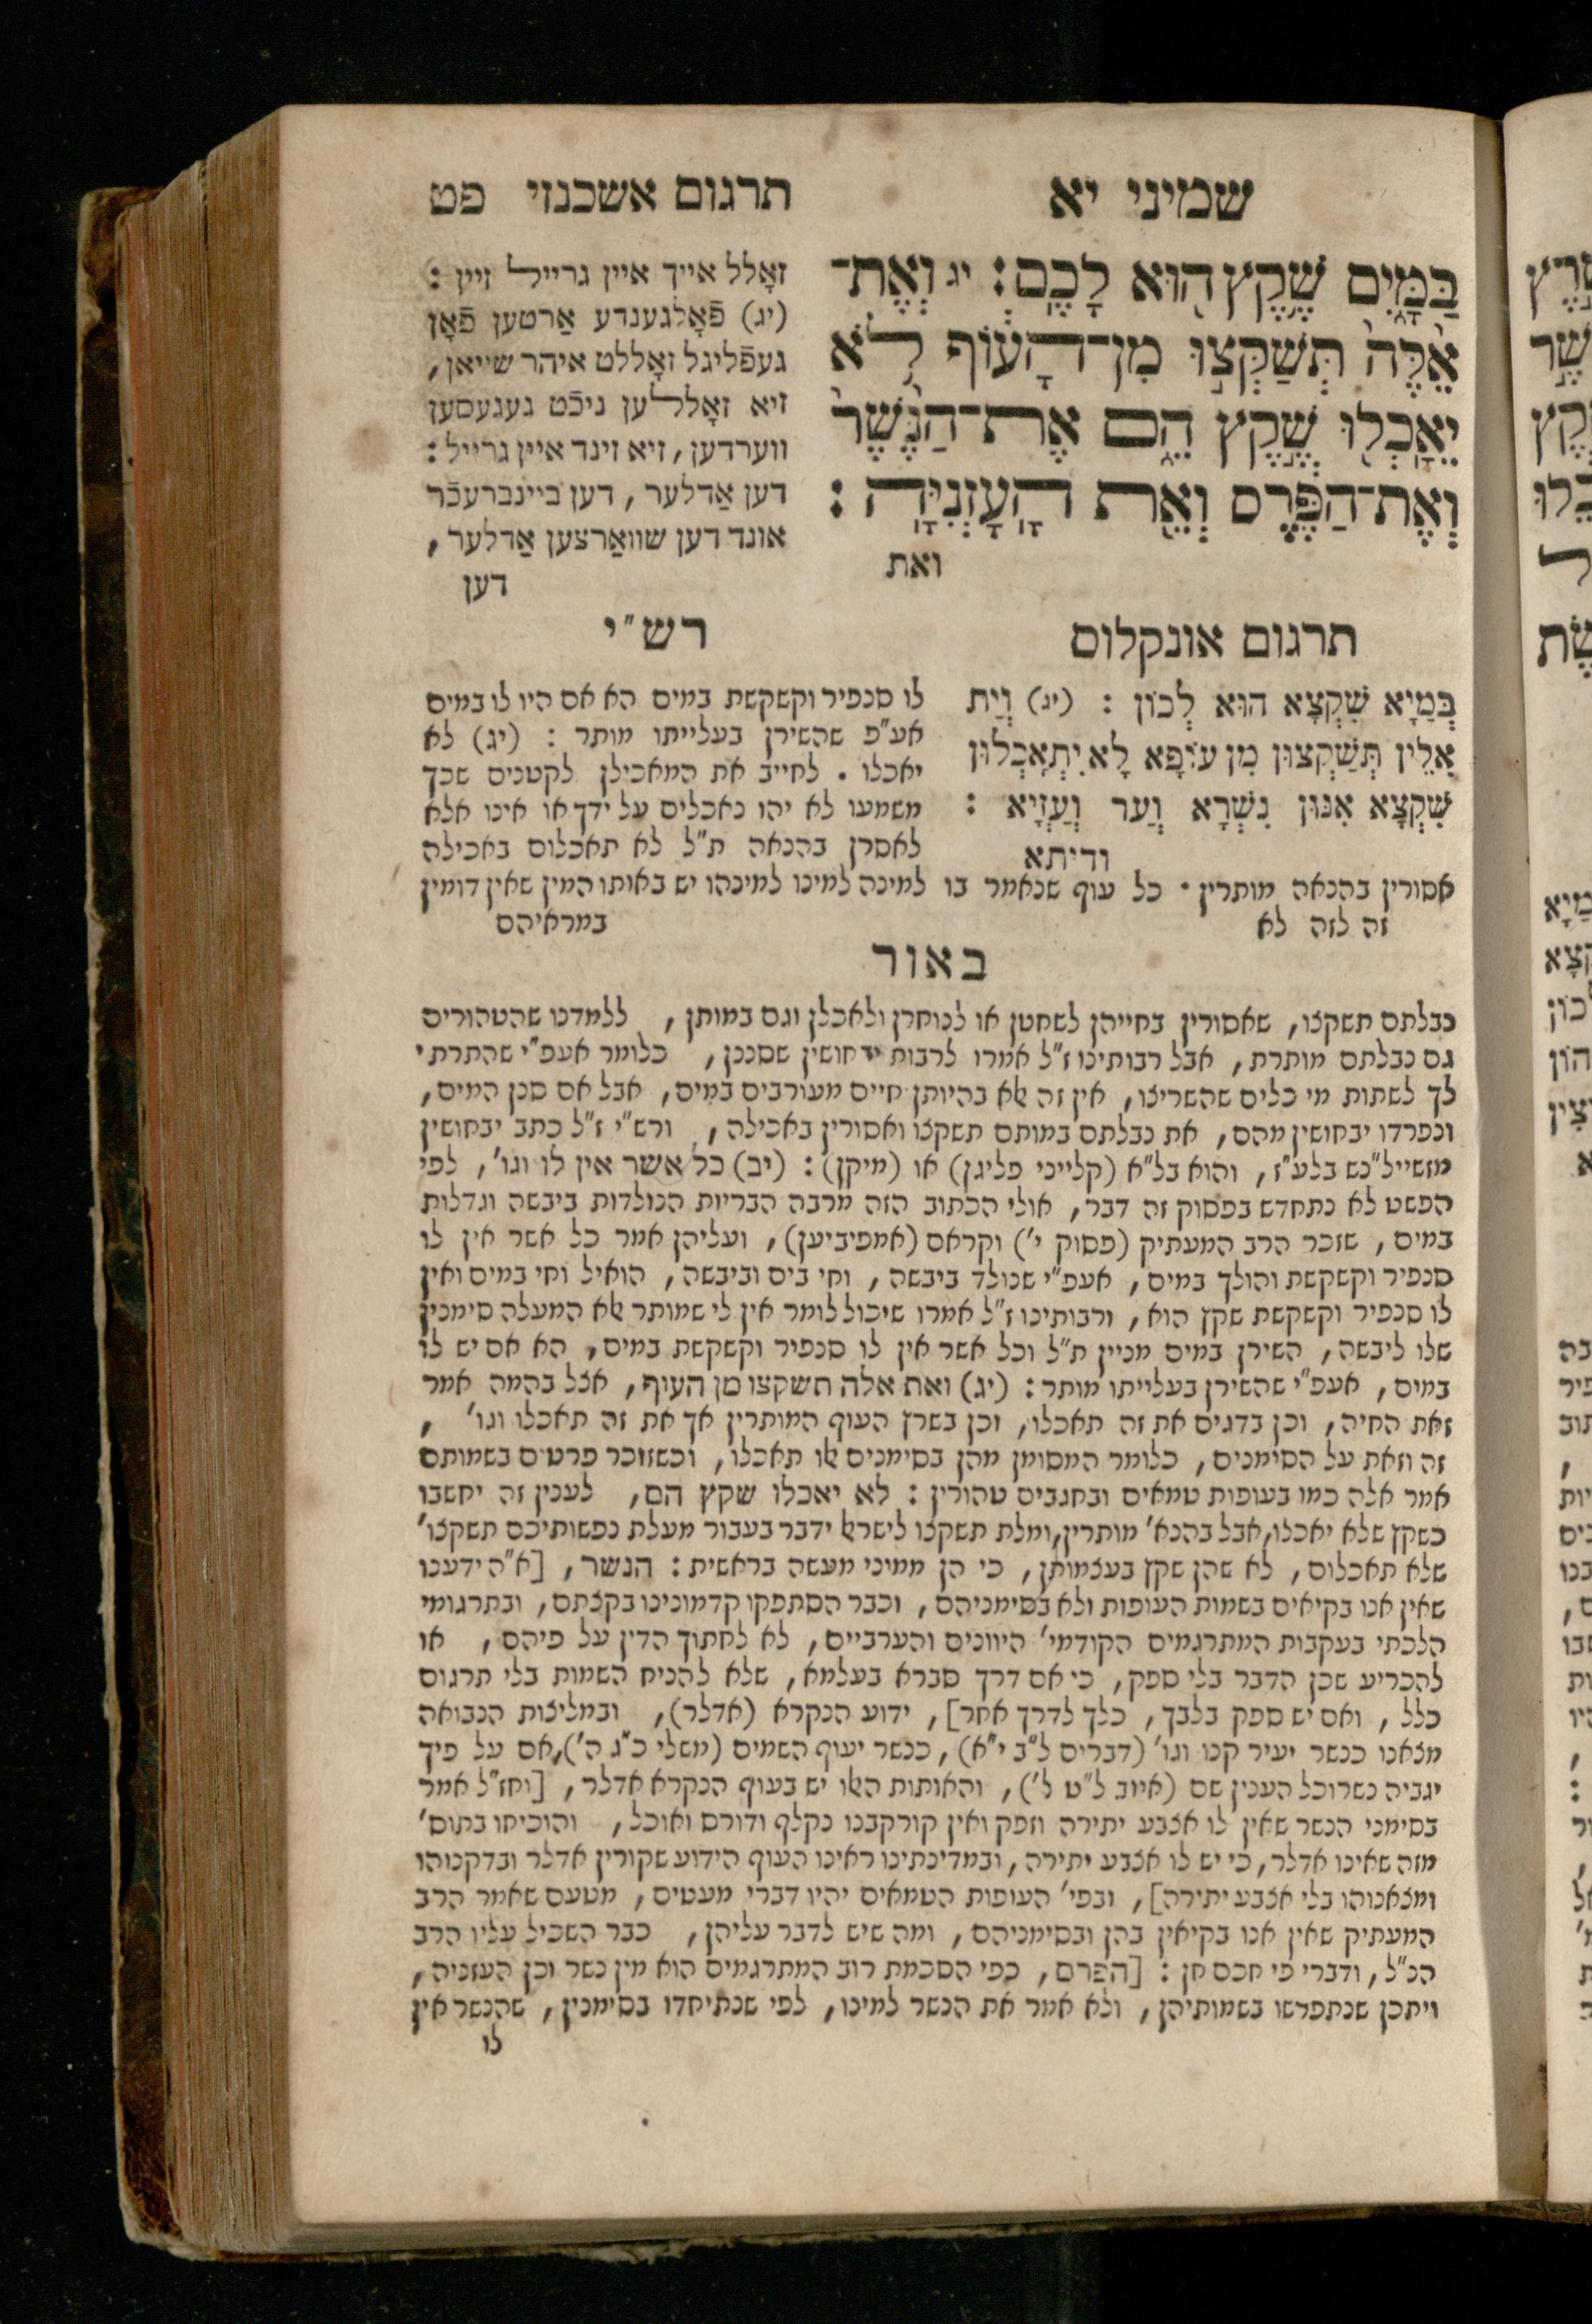 שמיני יא
תרגום אשכנזי פט
בַּמָּ֑יִם שֶׁ֥קֶץ ה֖וּא לָכֶֽם׃ יג וְאֶת־
אֵ֙לֶּה֙ תְּשַׁקְּצ֣וּ מִן־הָע֔וֹף לֹ֥א
יֵאָכְל֖וּ שֶׁ֣קֶץ הֵ֑ם אֶת־הַנֶּ֙שֶׁר֙
וְאֶת־הַפֶּ֔רֶס וְאֵ֖ת הָעָזְנִיָּֽה׃
ואת
זאָלל אייך איין גרייל זיין :
(יג) פֿאָלגענדע אַרטען פֿאָן
געפֿליגל זאָללט איהר שייאן,
זיא זאָללען ניכֿט געגעסען
ווערדען, זיא זינד איין גרייל :
דען אַדלער, דען ביינברעכֿר
אונד דען שוואַרצען אַדלער,
דען
תרגום אונקלוס
בְּמַיָא שִׁקְצָא הוּא לְכוֹן : (יג) וְיַת
אִלֵין תְּשַׁקְצוּן מִן עוֹפָא לָא יִתְאַכְלוּן
שִׁקְצָא אִנּוּן נִשְׁרָא וְעַר וְעַזְיָא :
ודיתא
רש"י
לו סנפיר וקשקשת במים הא אם היו לו במים
אע"פ שהשירן בעלייתו מותר : (יג) לא
יאכלו . לחייב את המאכילן לקטנים שכך
משמעו לא יהו נאכלים על ידך או אינו אלא
לאסרן בהנאה ת"ל לא תאכלום באכילה
אסורין בהנאה מותרין . כל עוף שנאמר בו למינה למינו למינהו יש באותו המין שאין דומין
זה לזה לא
במראיהם
באור
נבלתם תשקצו, שאסורין בחייהן לשחטן או לנוחרן ולאכלן וגם במותן, ללמדנו שהטהורים
גם נבלתם מותרת, אבל רבותינו ז"ל אמרו לרבות יבחושין שסננן, כלומר אעפ"י שהתרתי
לך לשתות מי כלים שהשריצו, אין זה אלא בהיותן חיים מעורבים במים, אבל אם סנן המים,
ונפרדו יבחושין מהם, את נבלתם במותם תשקצו ואסורין באכילה, ורש"י ז"ל כתב יבחושין
מושייל"נש בלע"ז, והוא בל"א (קלייני פליגן) או (מיקן) : (יב) כל אשר אין לו וגו', לפי
הפשט לא נתחדש בפסוק זה דבר, אולי הכתוב הזה מרבה הבריות הנולדות ביבשה וגדלות
במים, שזכר הרב המעתיק (פסוק י') וקראם (אמפיביען), ועליהן אמר כל אשר אין לו
סנפיר וקשקשת והולך במים, אעפ"י שנולד ביבשה, וחי בים וביבשה, הואיל וחי במים ואין
לו סנפיר וקשקשת שקץ הוא, ורבותינו ז"ל אמרו שיכול לומר אין לי שמותר אלא המעלה סימנין
שלו ליבשה, השירן במים מניין ת"ל וכל אשר אין לו סנפיר וקשקשת במים, הא אם יש לו
במים, אעפ"י שהשירן בעלייתו מותר : (יג) ואת אלה תשקצו מן העוף, אצל בהמה אמר
זאת החיה, וכן בדגים את זה תאכלו, וכן בשרץ העוף המותרין אך את זה תאכלו וגו' ,
זה וזאת על הסימנים, כלומר המסומן מהן בסימנים אלו תאכלו, וכשזוכר פרטים בשמותם
אמר אלה כמו בעופות טמאים ובחגבים טהורין : לא יאכלו שקץ הם, לענין זה יחשבו
כשקץ שלא יאכלו, אבל בהנא' מותרין, ומלת תשקצו לישראל ידבר בעבור מעלת נפשותיכם תשקצו'
שלא תאכלום, לא שהן שקץ בעצמותן, כי הן ממיני מעשה בראשית : הנשר, [א"ה ידענו
שאין אנו בקיאים בשמות העופות ולא בסימניהם, וכבר הסתפקו קדמונינו בקצתם, ובתרגומי
הלכתי בעקבות המתרגמים הקודמי' היוונים והערביים, לא לחתוך הדין על פיהם, או
להכריע שכן הדבר בלי ספק, כי אם דרך סברא בעלמא, שלא להניח השמות בלי תרגום
כלל, ואם יש ספק בלבך, כלך לדרך אחר], ידוע הנקרא (אדלר), ובמליצות הנבואה
מצאנו כנשר יעיר קנו וגו' (דברים ל"ב י"א), כנשר יעוף השמים (משלי כ"ג ה'), אם על פיך
יגביה נשר וכל הענין שם (איוב ל"ט ל'), והאותות האלו יש בעוף הנקרא אדלר, [וחז"ל אמר
בסימני הנשר שאין לו אצבע יתירה וזפק ואין קורקבנו נקלף ודורס ואוכל, והוכיחו בתוס'
מזה שאינו אדלר, כי יש לו אצבע יתירה, ובמדינתינו ראינו העוף הידוע שקורין אדלר ובדקנוהו
ומצאנוהו בלי אצבע יתירה], ובפי' העופות הטמאים יהיו דברי מעטים, מטעם שאמר הרב
המעתיק שאין אנו בקיאין בהן ובסימניהם, ומה שיש לדבר עליהן, כבר השכיל עליו הרב
הנ"ל, ודברי פי חכם חן : [הפרס, כפי הסכמת רוב המתרגמים הוא מין נשר וכן העזניה,
ויתכן שנתפרשו בשמותיהן, ולא אמר את הנשר למינו, לפי שנתיחדו בסימנין, שהנשר אין
לו